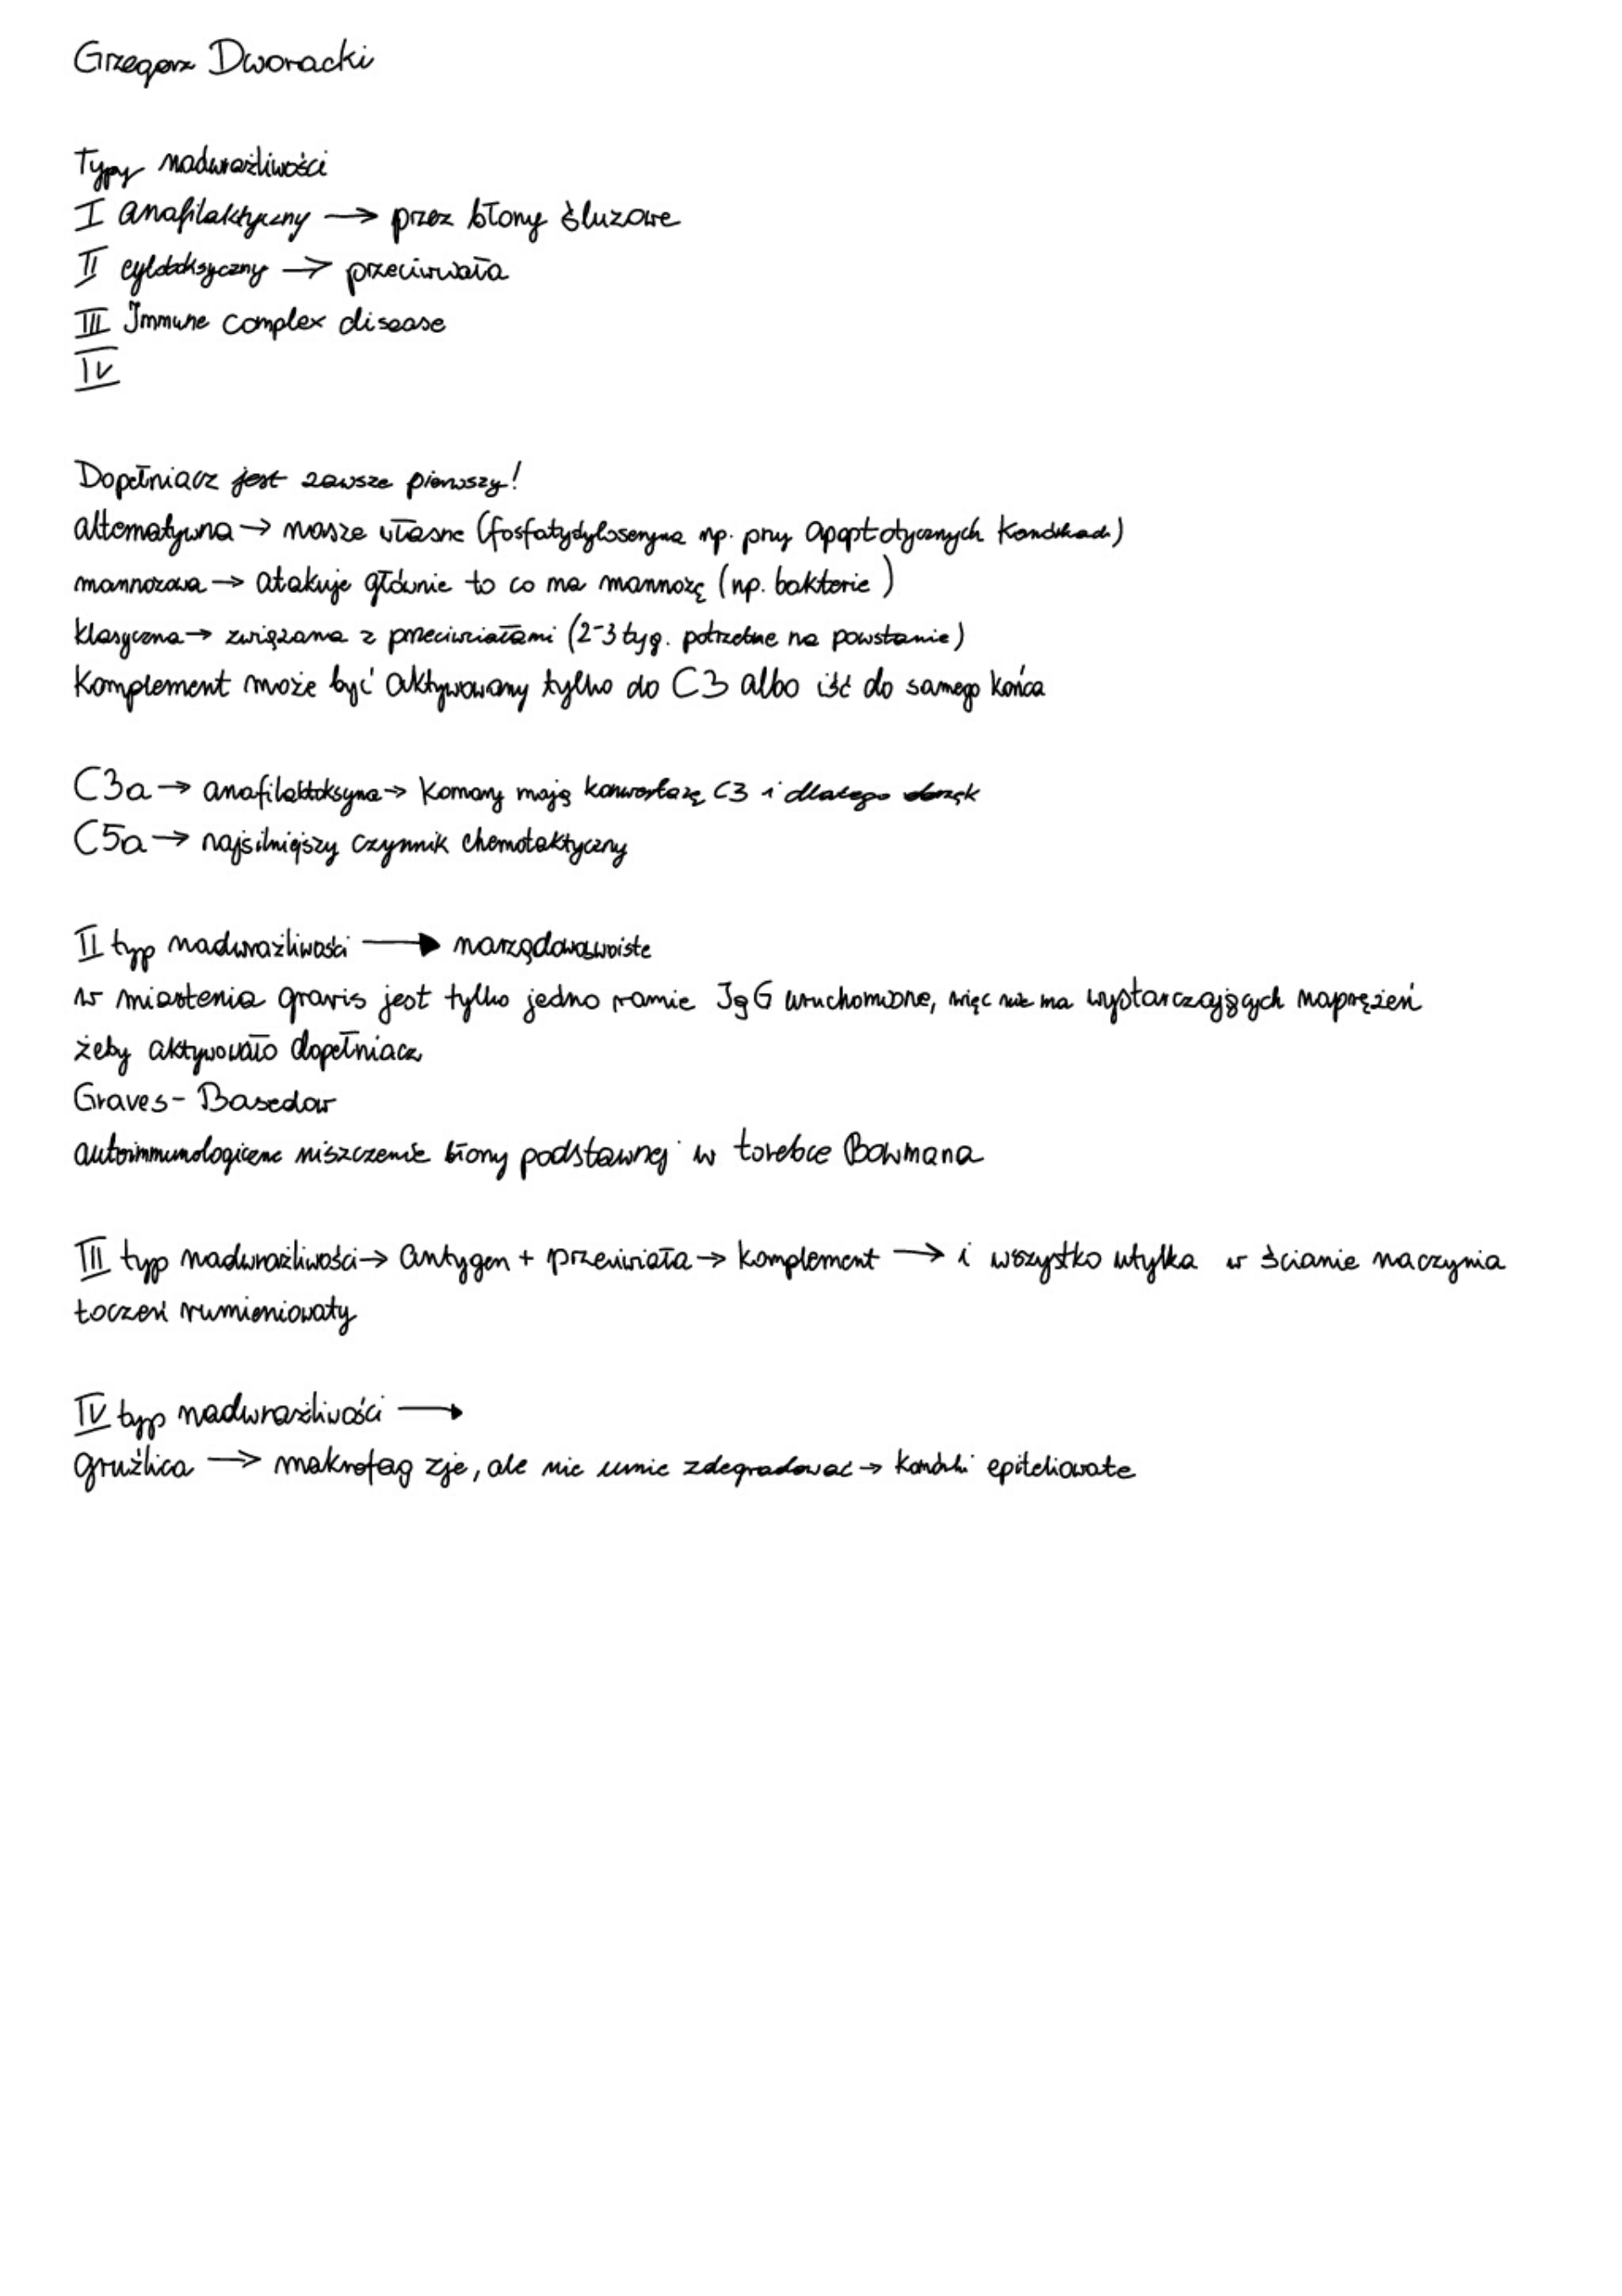 Grzegorz Dworacki
Typy nadwrażliwości
I anafilaktyczny → przez błony śluzowe
II cytotoksyczny → przeciwciała
III Immune complex disease
IV
Dopełniacz jest zawsze pierwszy!
alternatywna → nasze własne (fosfatydyloseryna np. przy apoptotycznych komórkach)
mannozowa → atakuje głównie to co ma mannozę (np. bakterie)
klasyczna → związana z przeciwciałami (2-3 tyg. potrzebne na powstanie)
Komplement może być aktywowany tylko do C3 albo iść do samego końca
C3a → anafilatoksyna → Komary mają konwertazę C3 i dlatego obrzęk
C5a → najsilniejszy czynnik chemotaktyczny
II typ nadwrażliwości → narządowoswoiste
w miastenia gravis jest tylko jedno ramie IgG uruchomione, więc nie ma wystarczających naprężeń
żeby aktywowało dopełniacz
Graves-Basedow
autoimmunologiczne niszczenie błony podstawnej w torebce Bowmana
III typ nadwrażliwości → antygen + przeciwciała → komplement → i wszystko utyka w ścianie naczynia
toczeń rumieniowaty
IV typ nadwrażliwości →
gruźlica → makrofag zje, ale nie umie zdegradować → komórki epitelioidalne